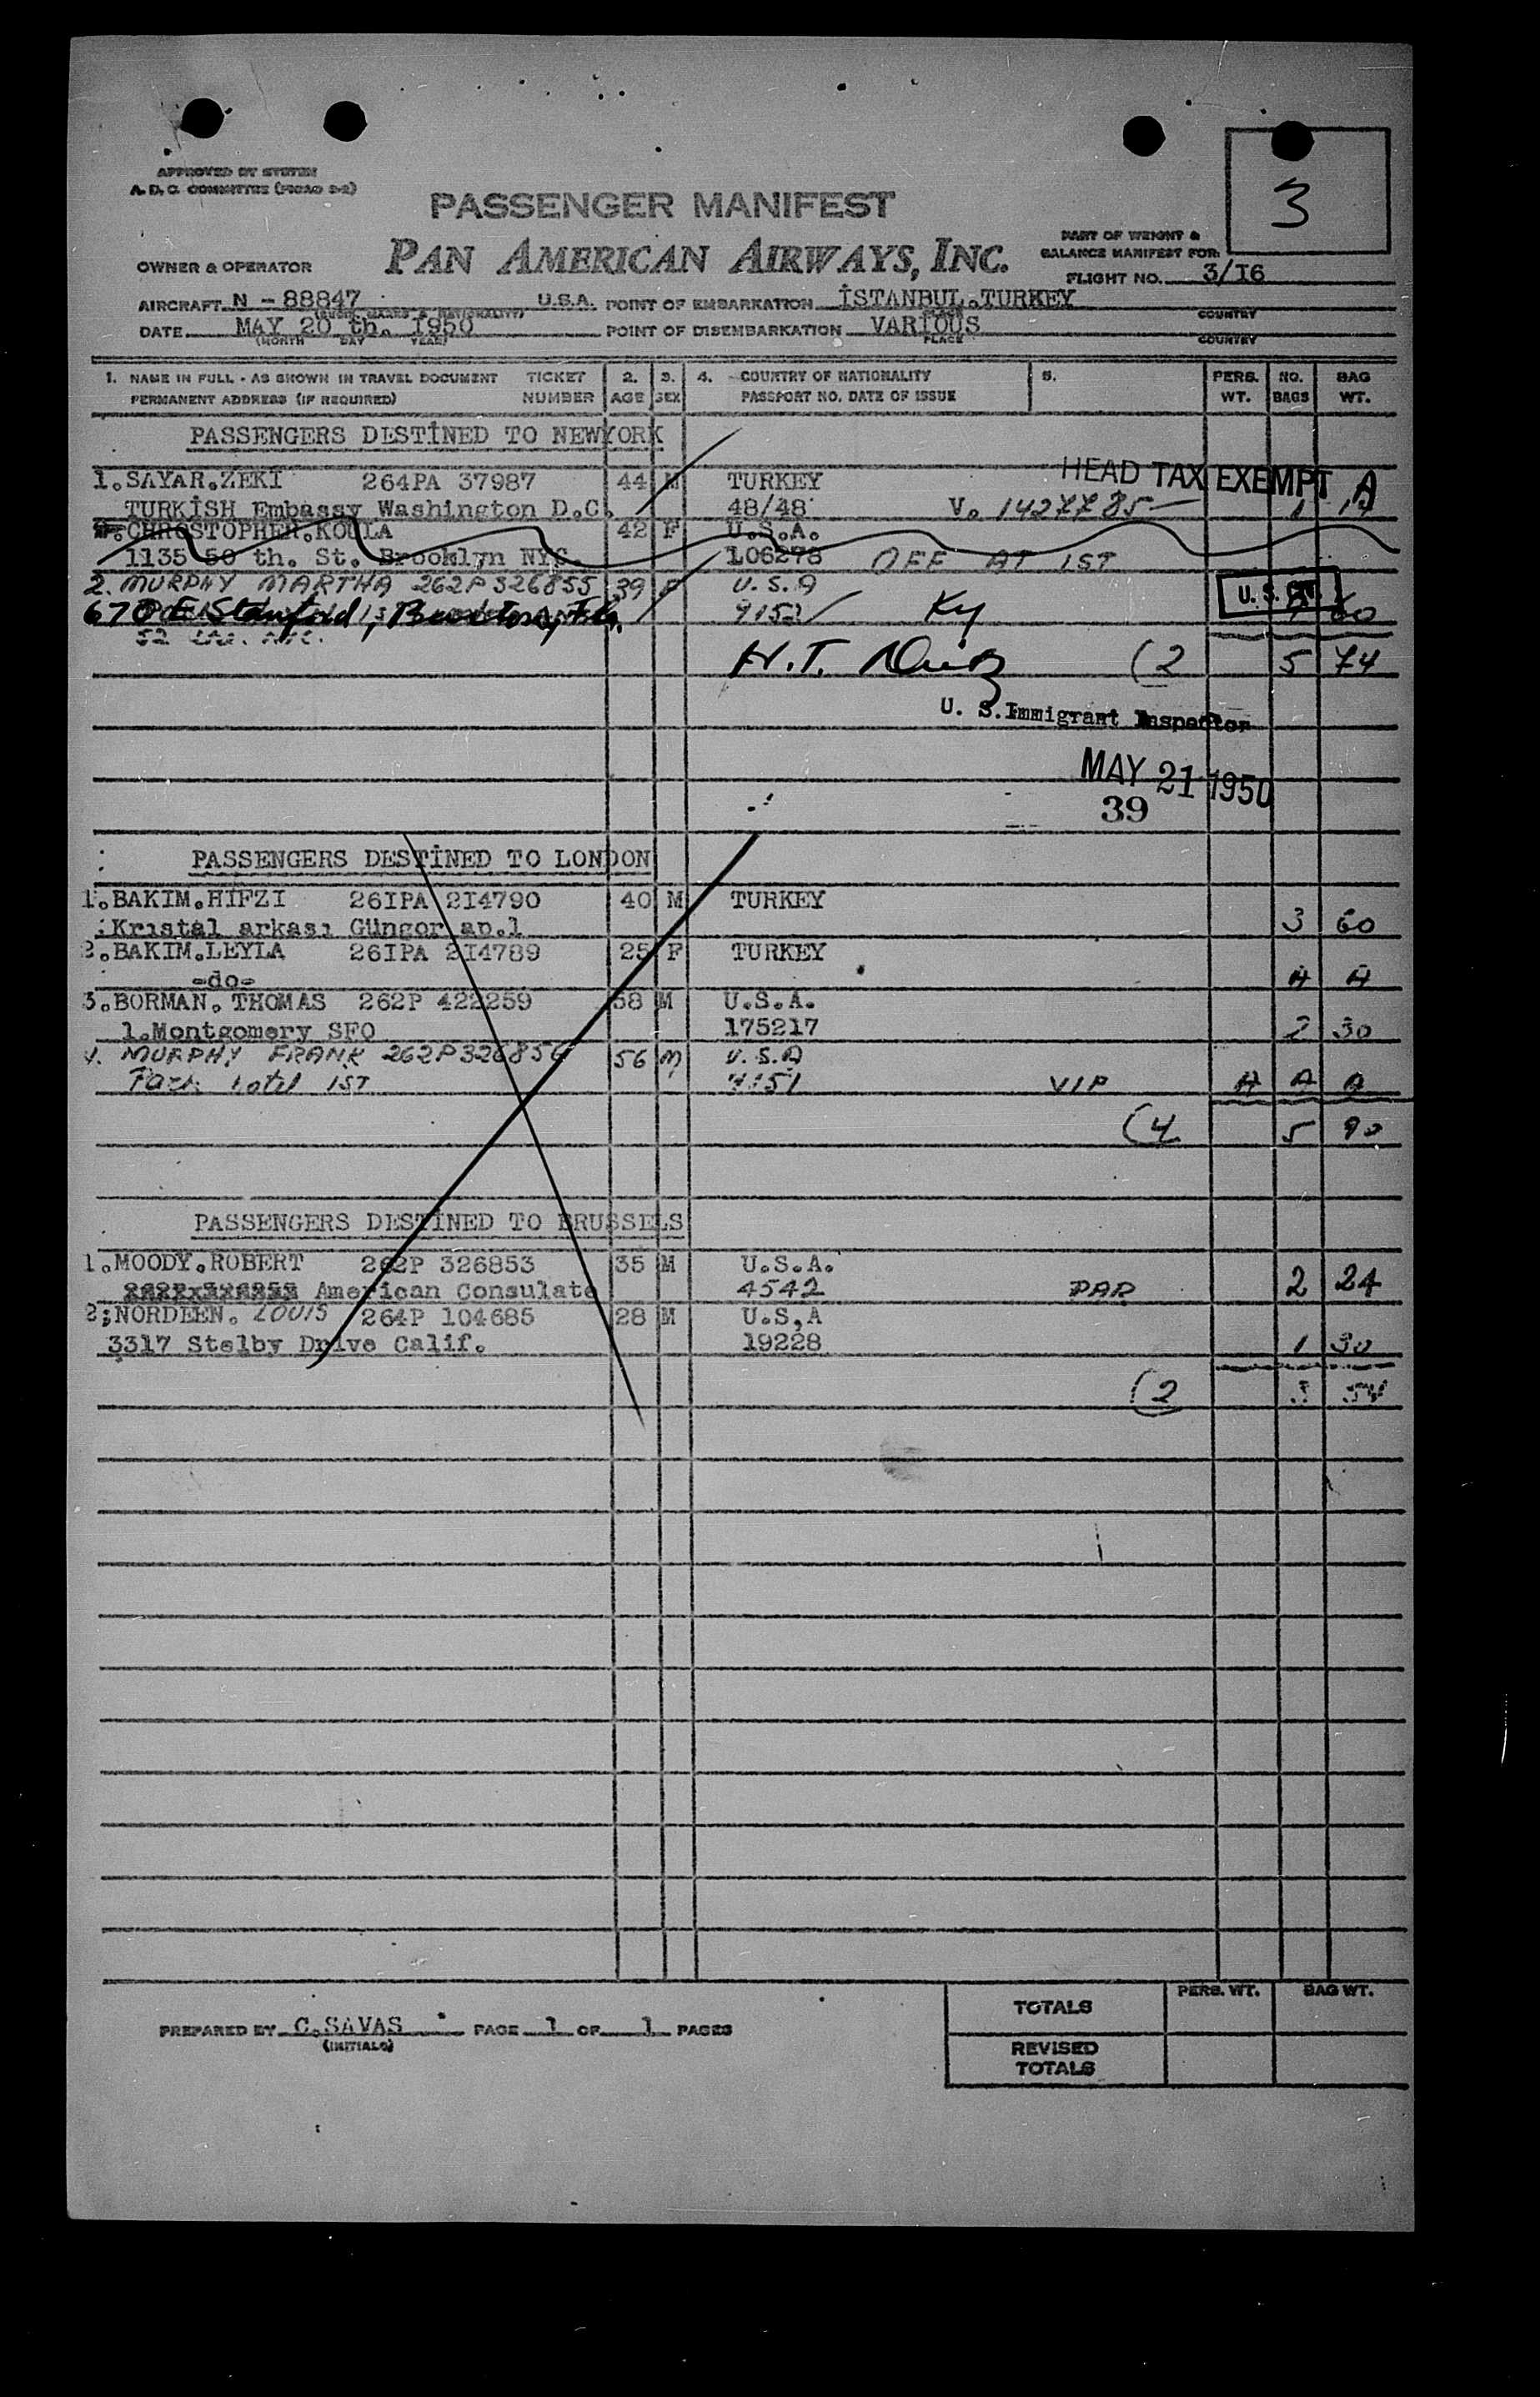 3
APPROVED BY SYSTEM
A.D.C. COMMITTEE (PICAO 2-2)
PASSENGER MANIFEST
PAN AMERICAN AIRWAYS, INC.
PART OF WEIGHT &
BALANCE MANIFEST FOR:
OWNER & OPERATOR
FLIGHT NO. 3/I6
AIRCRAFT N - 88847 U.S.A. POINT OF EMBARKATION İSTANBUL.TURKEY
PLACE COUNTRY
DATE MAY 20 th. I950 POINT OF DISEMBARKATION VARIOUS
(MONTH DAY YEAR) PLACE COUNTRY
1. NAME IN FULL - AS SHOWN IN TRAVEL DOCUMENT TICKET 2. 3. 4. COUNTRY OF NATIONALITY 5. PERS. NO. BAG
PERMANENT ADDRESS (IF REQUIRED) NUMBER AGE SEX PASSPORT NO. DATE OF ISSUE WT. BAGS WT.
PASSENGERS DESTİNED TO NEWYORK
HEAD TAX EXEMPT A
1.SAYAR.ZEKİ 264PA 37987 44 M TURKEY
TURKİSH Embassy Washington D.C. 48/48 V. 1427785 1 14
CHROSTOPHER.KOULA 42 F U.S.A.
1135 50 th. St. Brooklyn NYC. 106278 OFF AT IST
2. MURPHY MARTHA 262P326855 39 F U.S.A U.S.
670 E Stanford, 9152 60
H.T. (2 5 74
U. S. Immigrant Inspector
MAY 21 1950
39
PASSENGERS DESTİNED TO LONDON
1.BAKIM.HIFZI 26IPA 2I4790 40 M TURKEY
Kristal arkası Güngor ap.1 3 60
2.BAKIM.LEYLA 26IPA 2I4789 25 F TURKEY
-do- A A
3.BORMAN. THOMAS 262P 422259 58 M U.S.A.
1.Montgomery SFO 175217 2 30
4. MURPHY FRANK 262P326856 56 M U.S.A
Park hotel IST 9151 VIP A A A
(4 5 90
PASSENGERS DESTİNED TO BRUSSELS
1.MOODY.ROBERT 262P 326853 35 M U.S.A.
American Consulate 4542 PAR 2 24
2;NORDEEN. LOUIS 264P 104685 28 M U.S,A
3317 Stelby Drive Calif. 19228 1 30
(2 3 54
PERS. WT. BAG WT.
TOTALS
PREPARED BY C.SAVAS PAGE 1 OF 1 PAGES
(INITIALS)
REVISED
TOTALS